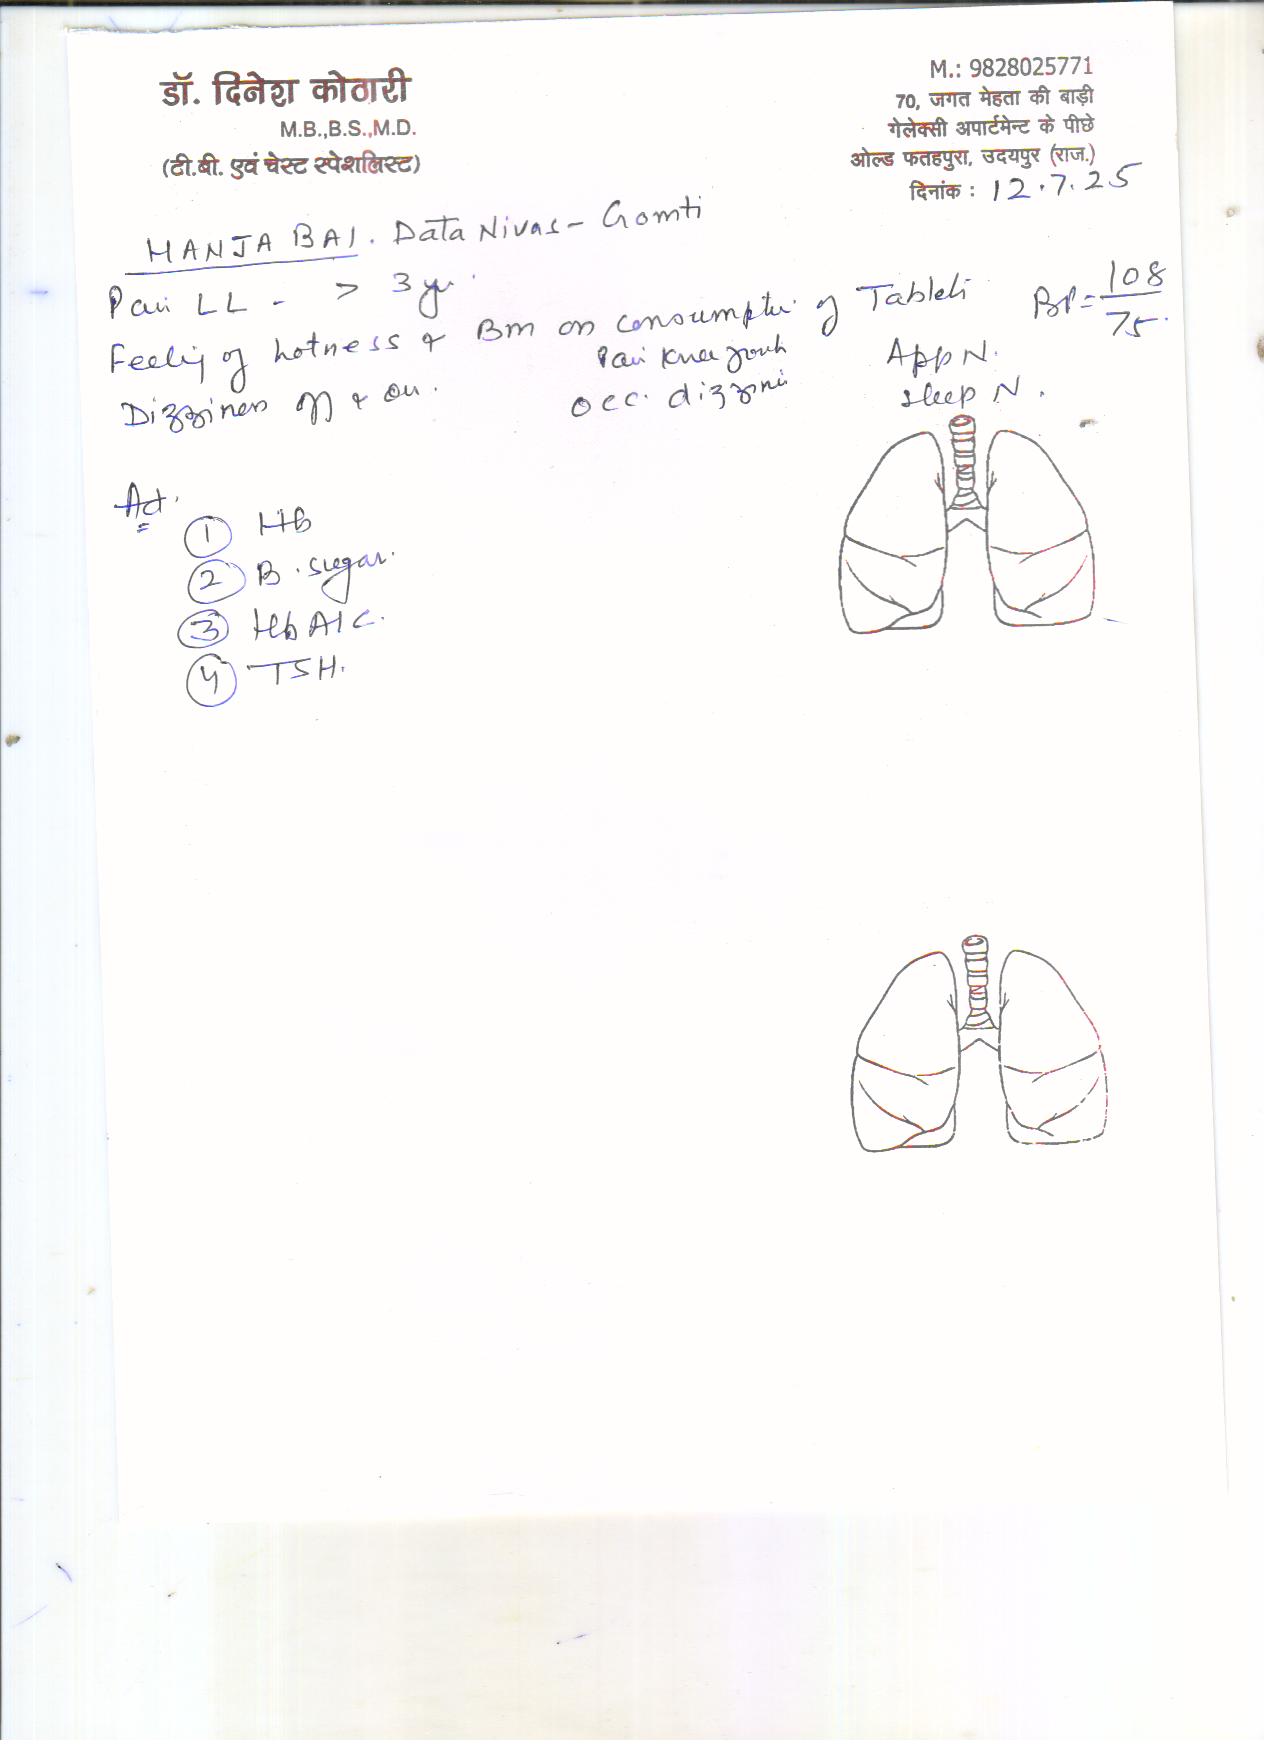 डॉ. दिनेश कोठारी
M.B.,B.S.,M.D.
(टी.बी. एवं चेस्ट स्पेशलिस्ट)
M.: 9828025771
70, जगत मेहता की बाड़ी
गेलेक्सी अपार्टमेन्ट के पीछे
ओल्ड फतहपुरा, उदयपुर (राज.)
दिनांक : 12.7.25
HANJA BAI. Data Nivas - Gomti
Pain LL - > 3 yr.
BP = 108/75.
Feeling of hotness & Bm on consumption of Tablets
Dizziness off & on.
Pain Knee joints
Occ. dizziness
App N.
Sleep N.
Ad.
① Hb
② B. sugar.
③ HbA1C.
④ TSH.